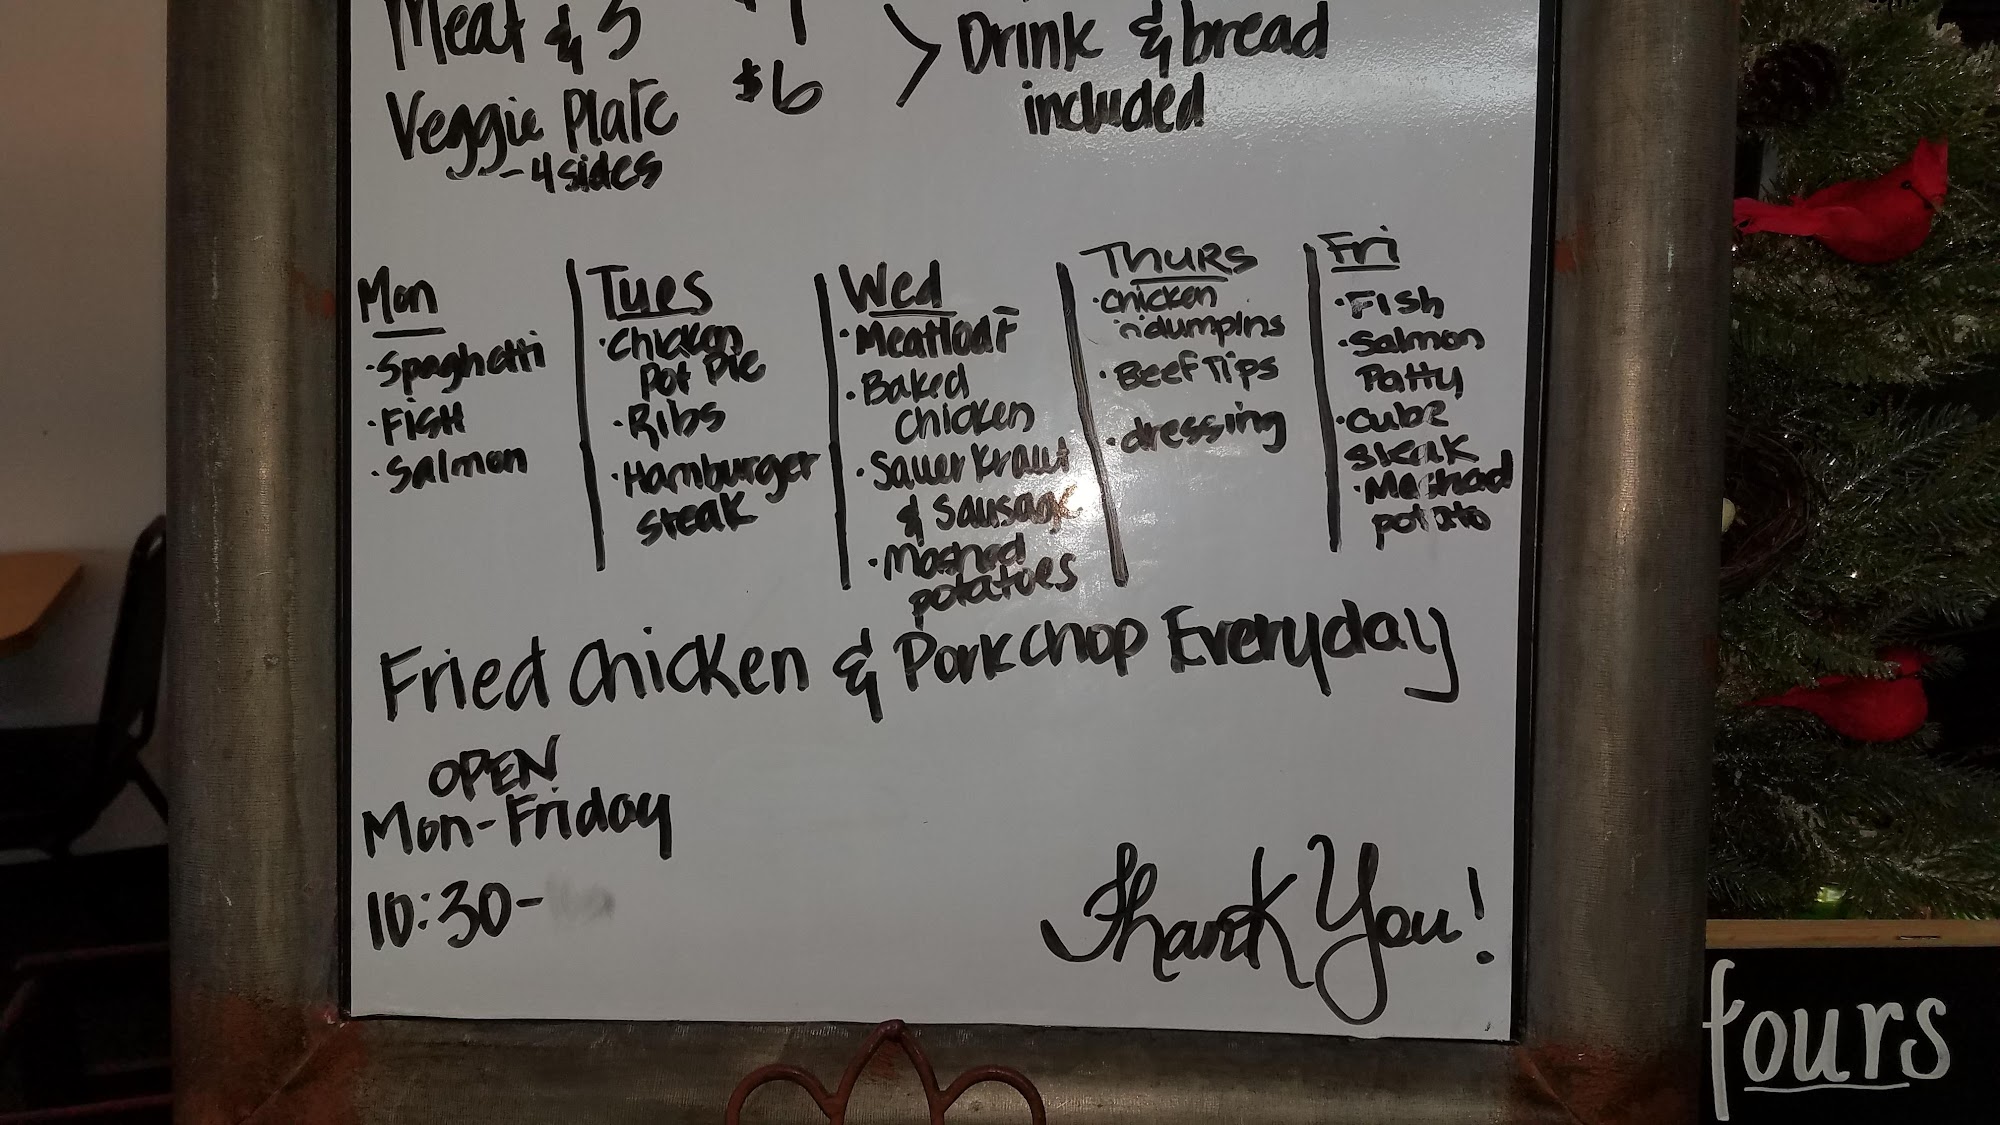 Meat & 3
Veggie Plate $6
- 4 sides
Drink & bread
included
Mon
· Spaghetti
· Fish
· Salmon
Tues
· Chicken
Pot Pie
· Ribs
· Hamburger
steak
Wed
· Meatloaf
· Baked
chicken
· Sauerkraut
& sausage
· Mashed
potatoes
Thurs
· chicken
n dumplns
· Beef Tips
· dressing
Fri
· Fish
· Salmon
Patty
· cube
steak
· Mashed
potato
Fried Chicken & Porkchop Everyday
OPEN
Mon-Friday
10:30-
Thank You!
yours